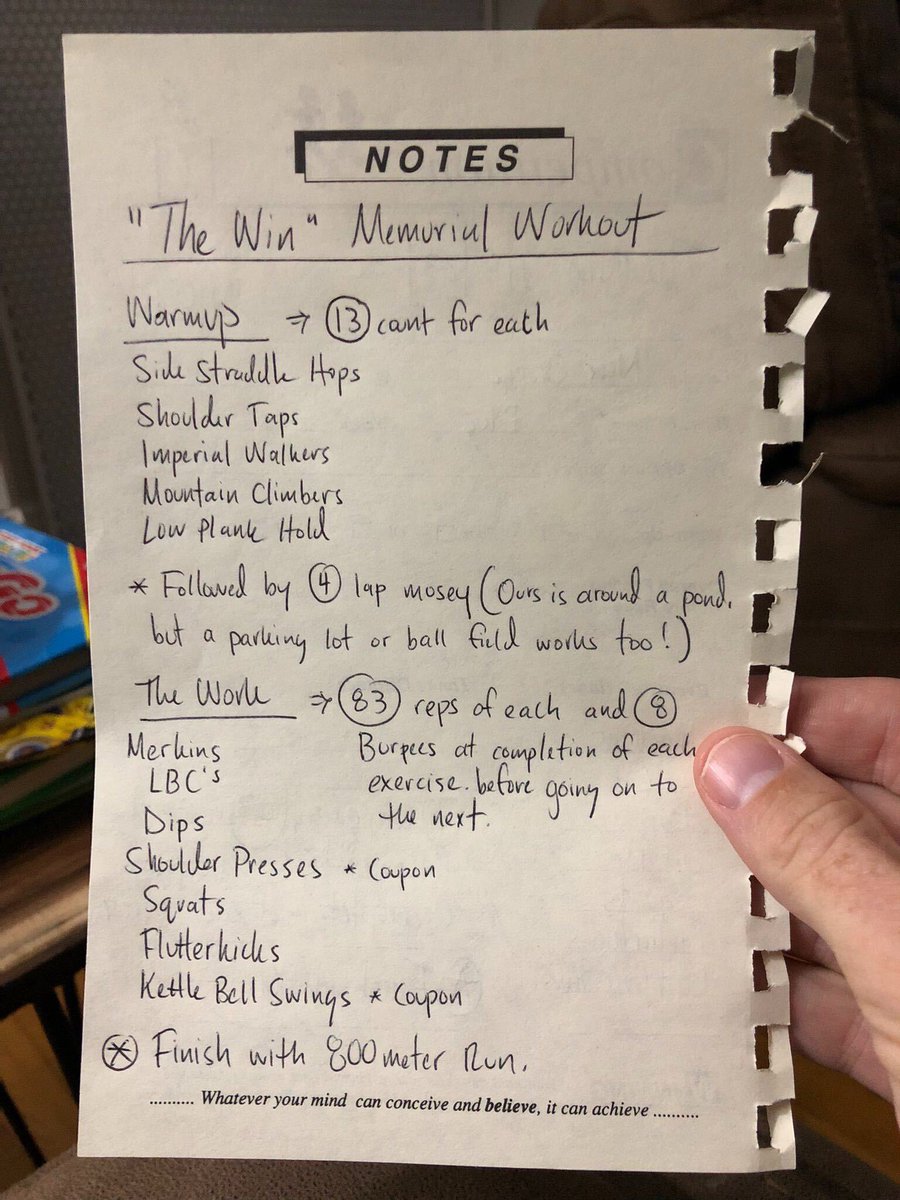 NOTES
"The Win" Memorial Workout
Warmup → 13 count for each
Side Straddle Hops
Shoulder Taps
Imperial Walkers
Mountain Climbers
Low Plank Hold
* Followed by 4 lap mosey (Ours is around a pond,
but a parking lot or ball field works too!)
The Work → 83 reps of each and 8
Merkins Burpees at completion of each
LBC's exercise before going on to
Dips the next.
Shoulder Presses * Coupon
Squats
Flutterkicks
Kettle Bell Swings * Coupon
* Finish with 800 meter Run.
.......... Whatever your mind can conceive and believe, it can achieve ..........